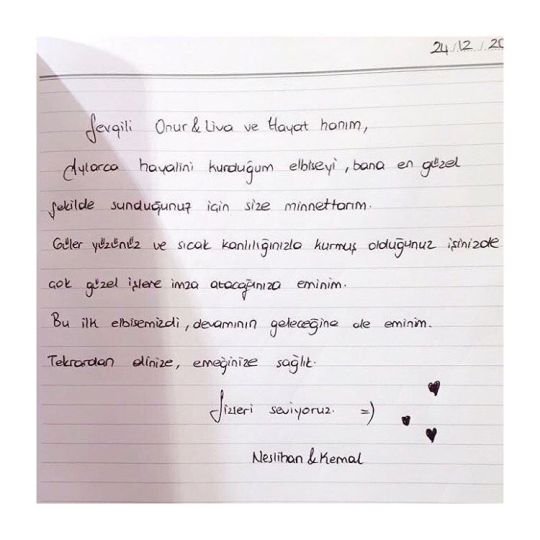 24/12/20
Sevgili Onur & Liva ve Hayat hanım,
Aylarca hayalini kurduğum elbiseyi, bana en güzel
şekilde sunduğunuz için size minnettarım.
Güler yüzünüz ve sıcak kanlılığınızla kurmuş olduğunuz işinizde
çok güzel işlere imza atacağınıza eminim.
Bu ilk elbisemizdi, devamının geleceğine de eminim.
Tekrardan elinize, emeğinize sağlık.
Sizleri seviyoruz. =)
Neslihan & Kemal